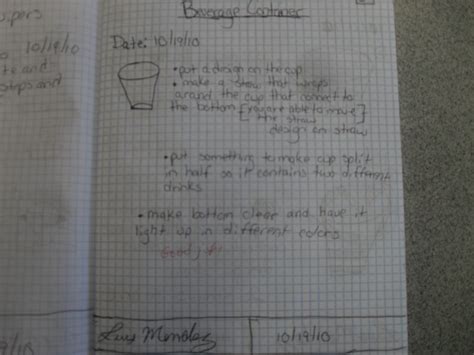 10/19/10
Beverage Container
Date: 10/19/10
• put a design on the cup
• make a straw that wraps
around the cup that connect to
the bottom [you are able to move]
the straw
design on straw
• put something to make cup split
in half so it contains two different
drinks
• make bottom clear and have it
light up in different colors
Good;
10/19/10